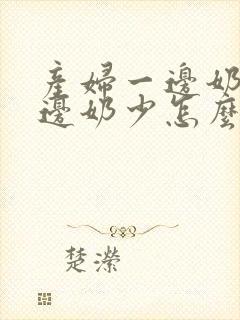 產婦一邊奶
邊奶少怎麼
楚濴